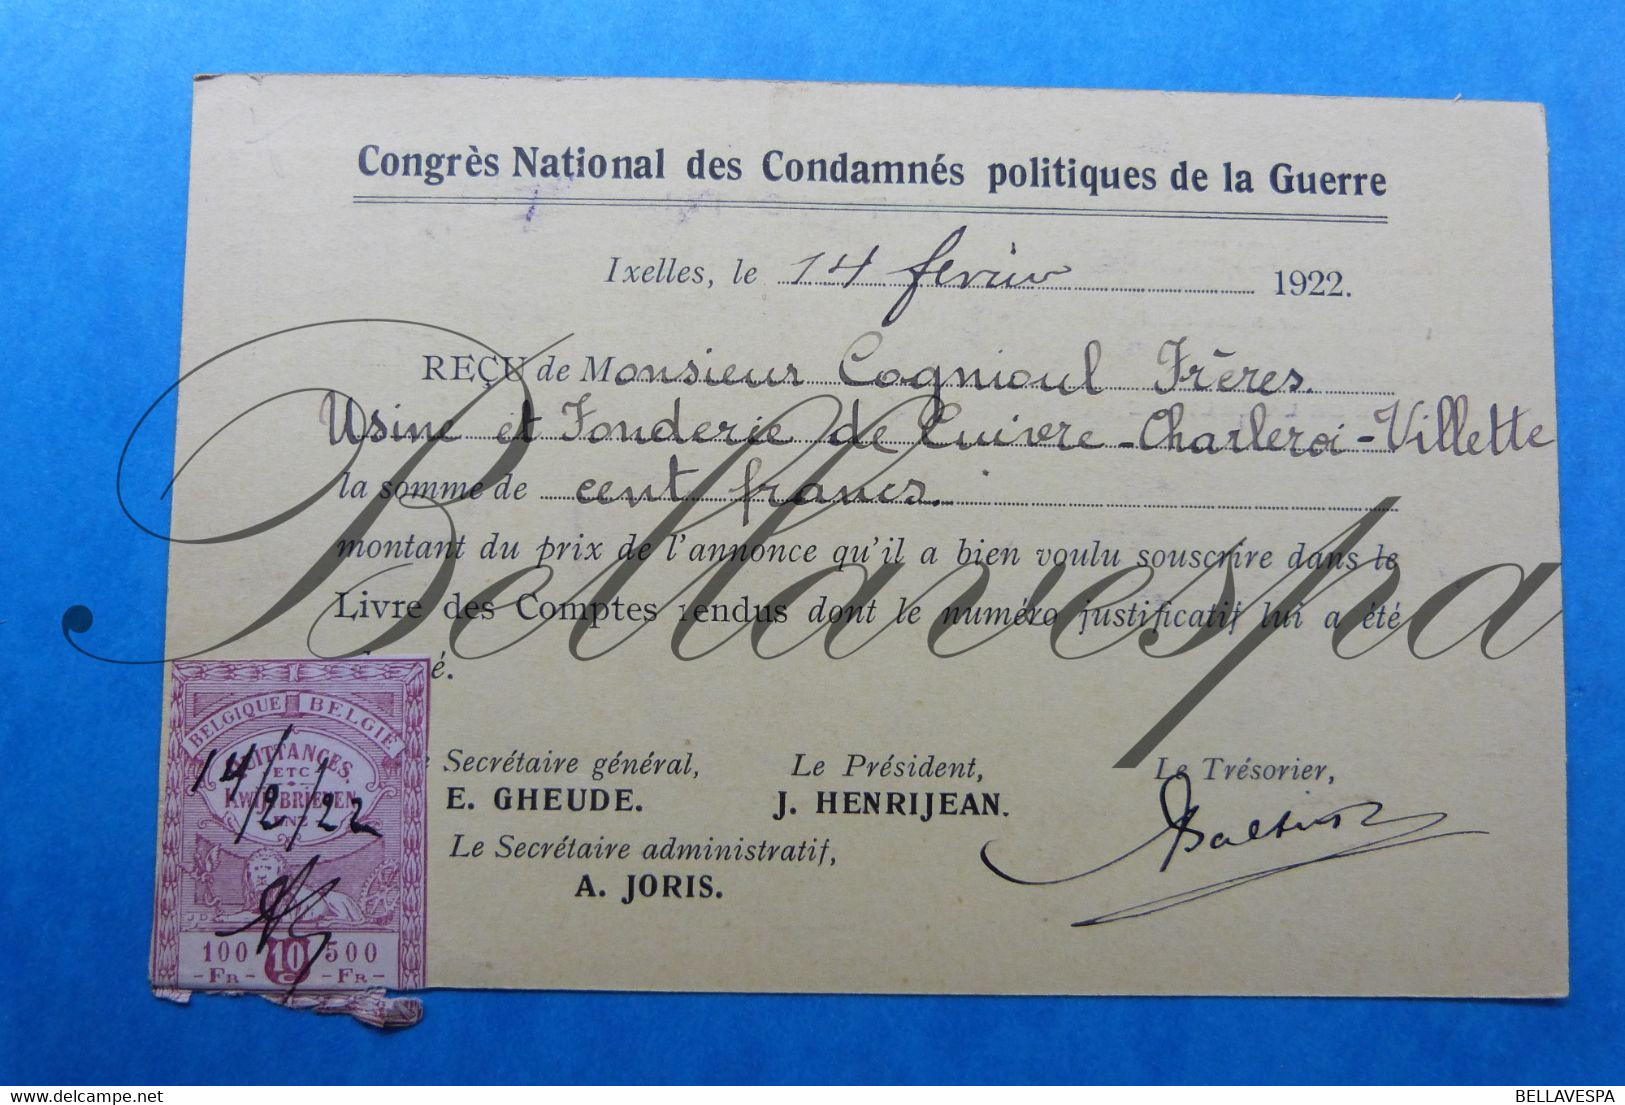 Congrès National des Condamnés politiques de la Guerre
Ixelles, le 14 fevrier 1922.
REÇU de Monsieur Cognioul Frères.
Usine et Fonderie de Cuivre - Charleroi - Villette
la somme de cent francs.
montant du prix de l'annonce qu'il a bien voulu souscrire dans le
Livre des Comptes rendus dont le numéro justificatif lui a été
é.
Secrétaire général,
E. GHEUDE.
Le Président,
J. HENRIJEAN.
Le Trésorier,
Le Secrétaire administratif,
A. JORIS.
BELGIQUE BELGIË
QUITTANCES,
ETC
KWIJTBRIEVEN
ENZ
14/2/22
J D
100 10 500
- FR - C - FR -
Bellavespa
delcampe.net
BELLAVESPA